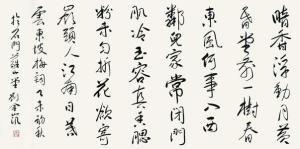 暗香浮動月黃
昏堂前一樹春
東風何事入西
鄰兒家常閉門
肌冷玉容真香腮
粉未勻折花欲寄
嶺頭人江南日暮
雲東坡梅詞乙未初秋
於石門